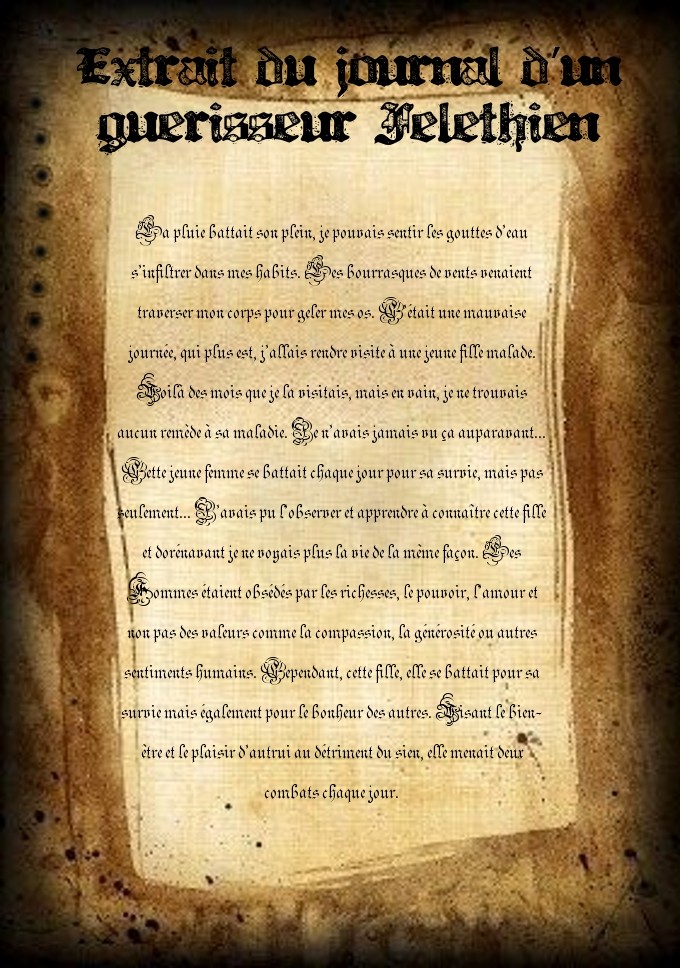 Extrait du journal d'un
guerisseur Felethien
La pluie battait son plein, je pouvais sentir les gouttes d'eau
s'infiltrer dans mes habits. Les bourrasques de vents venaient
traverser mon corps pour geler mes os. C'était une mauvaise
journée, qui plus est, j'allais rendre visite à une jeune fille malade.
Voilà des mois que je la visitais, mais en vain, je ne trouvais
aucun remède à sa maladie. Je n'avais jamais vu ça auparavant...
Cette jeune femme se battait chaque jour pour sa survie, mais pas
seulement... J'avais pu l'observer et apprendre à connaître cette fille
et dorénavant je ne voyais plus la vie de la même façon. Les
Hommes étaient obsédés par les richesses, le pouvoir, l'amour et
non pas des valeurs comme la compassion, la générosité ou autres
sentiments humains. Cependant, cette fille, elle se battait pour sa
survie mais également pour le bonheur des autres. Visant le bien-
être et le plaisir d'autrui au détriment du sien, elle menait deux
combats chaque jour.